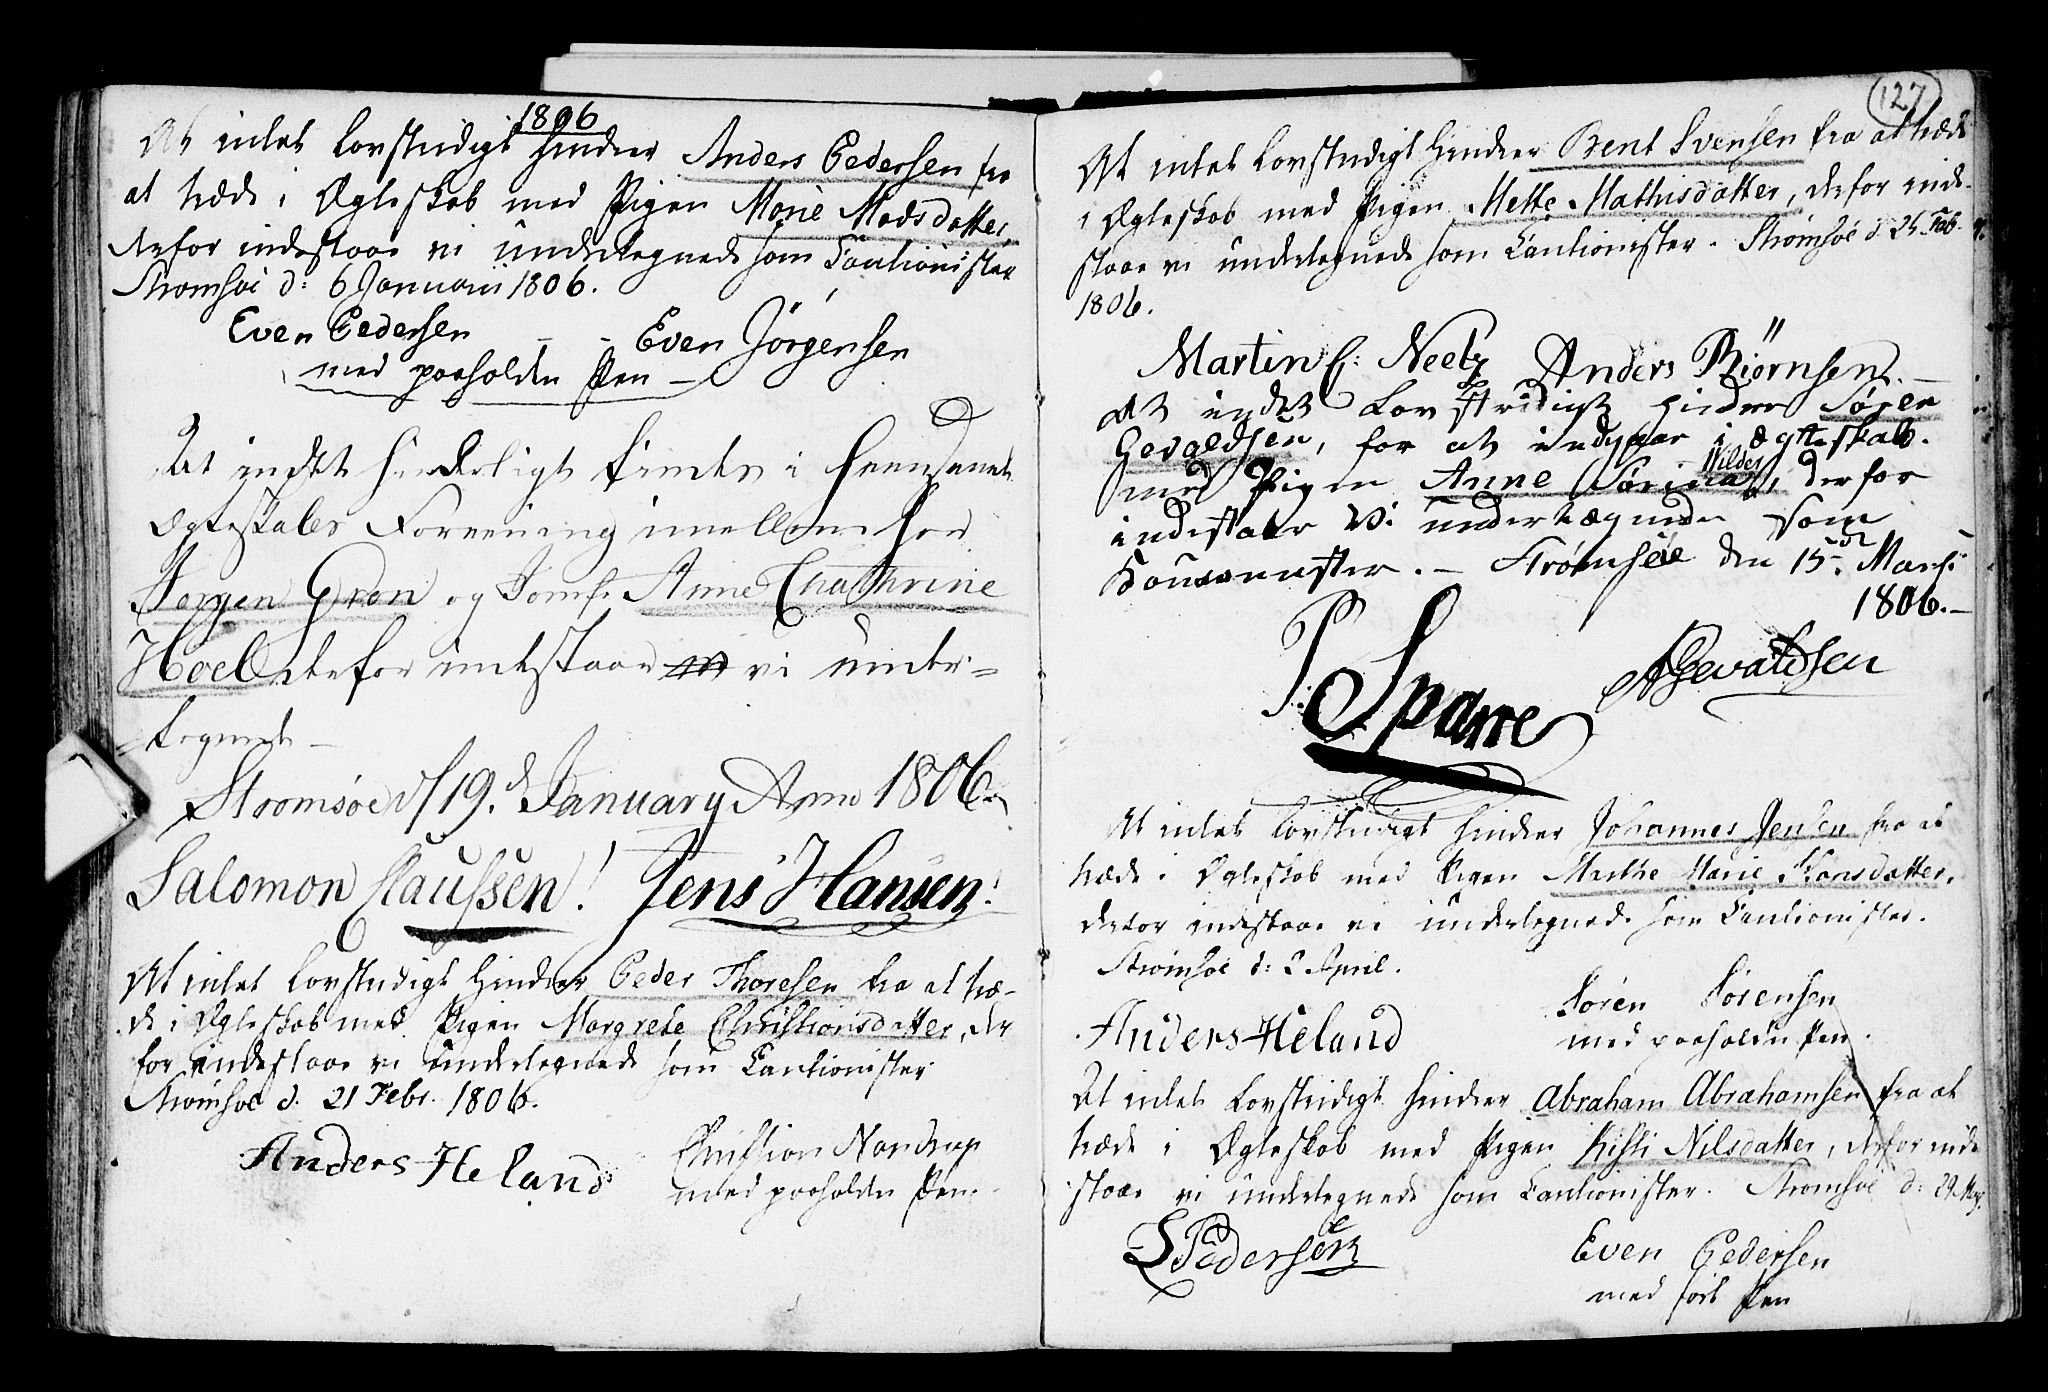 1806
At intet Lovstridigt hindrer Anders Pedersen fra
at træde i Ægteskab med Pigen Marie Madsdatter
derfor indestaae vi undertegnede som Cautionister
Strømsøe d: 6 Januarii 1806.
Even Pedersen - - Even Jörgensen
med paaholden Pen
At indtet hinderligt findes i
Ægteskabs Foreening imellem her
Jørgen Grøn og Jomf. Anne Chathrine
Hoel derfor indestaar vi under=
=tegnede –
Strømsøe d 19.d January Anno 1806
Salomon Claussen! Jens Hansen!
At intet Lovstridigt hindrer Peder Thoresen fra at træ-
de i Ægteskab med Pigen Margrete Christiansdatter, der
for indestaae vi undertegnede som Cautionister
Strømsøe d. 21 Febr. 1806.
Anders Heland Christian Nordrup
med paaholden Pen
127
At intet Lovstridigt hindrer Bent Svensen fra at træde
i Ægteskab med Pigen Mette Mathisdatter, derfor inde-
staae vi undertegnede som Cautionister. Strømsøe d 25 Feb.
1806.
Martin C: Neetz Anders Biørnsen.
At indtet Lovstridigt hindrer Søren
Gevaldsen, for at indgaar i Ægteskab
med Pigen Anne Sørina Wilder, derfor
indestaar Vi undertægnede som
. – Strømsøe den 15de Marsi
1806. –
P: Sparre AGevaldsen
At intet Lovstridigt hindrer Johannes Jensen fra at
træde i Ægteskab med Pigen Marthe Marie Hansdatter,
derfor indestaae vi undertegnede som Cautionister.
Strømsøe d: 2 April.
Anders Heland Sören Sörensen
med paaholden Pen.
At intet Lovstridigt hindrer Abraham Abrahamsen fra at
træde i Ægteskab med Pigen Kisti Nilsdatter, derfor inde
staae vi undertegnede som Cautionister. Strømsøe d: 29 May.
S Pedersen Even Pedersen
med ført Pen